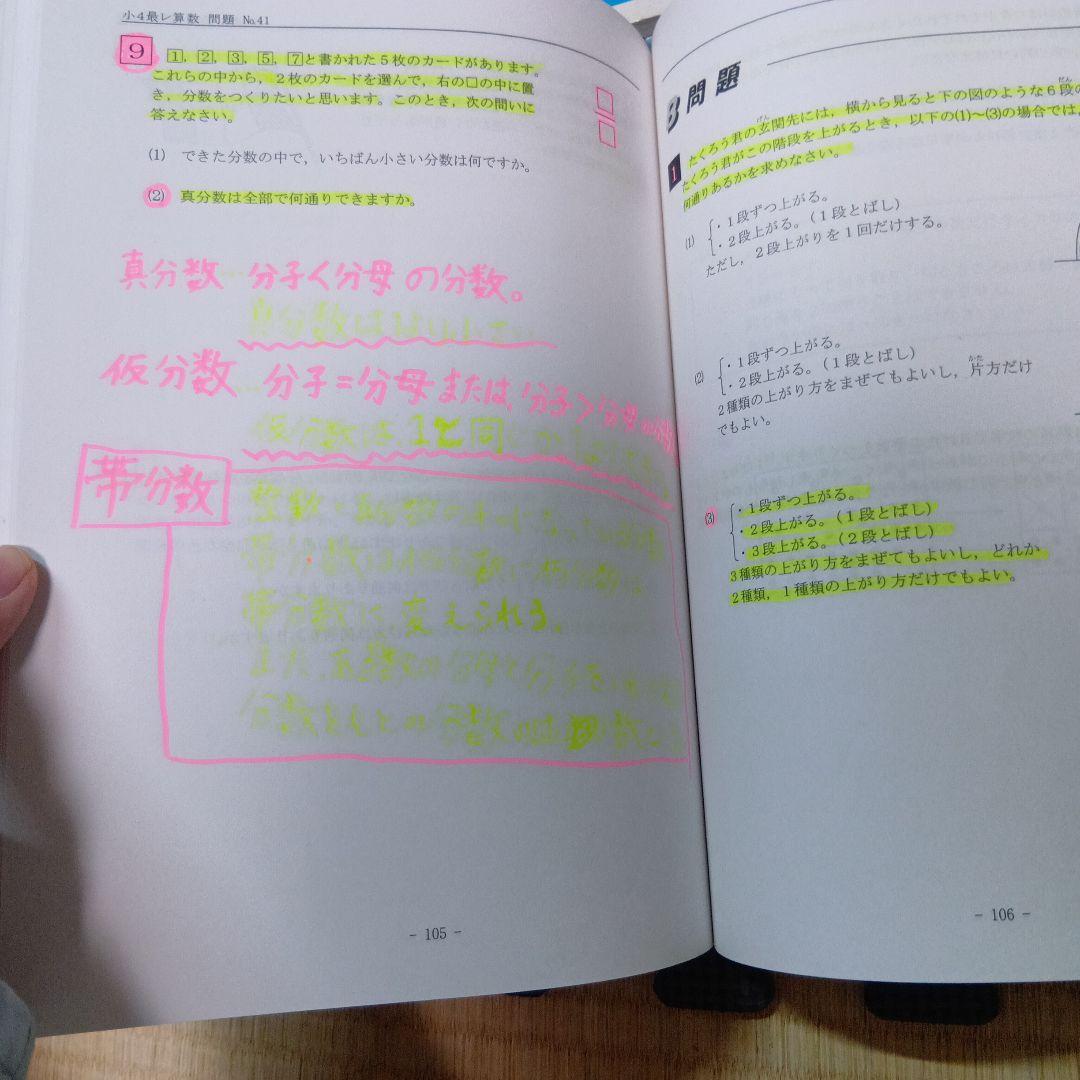 小4最レ算数 問題 No.41
9 1, 2, 3, 5, 7と書かれた5枚のカードがあります。
これらの中から，2枚のカードを選んで，右の□の中に置
き，分数をつくりたいと思います。このとき，次の問いに
答えなさい。
(1) できた分数の中で，いちばん小さい分数は何ですか。
(2) 真分数は全部で何通りできますか。
真分数…分子＜分母の分数。
真分数は1より小さい
仮分数…分子＝分母または、分子＞分母の分数
仮分数は、1と同じか
帯分数
整数と真分数の
帯分数に変えられる。
また、
分数をもとの分数の
- 105 -
B問題
1 たくろう君の玄関先には，横から見ると下の図のような6段の
たくろう君がこの階段を上がるとき，以下の(1)～(3)の場合では，
何通りあるかを求めなさい。
(1) ・1段ずつ上がる。
・2段上がる。(1段とばし)
ただし，2段上がりを1回だけする。
(2) ・1段ずつ上がる。
・2段上がる。(1段とばし)
2種類の上がり方をまぜてもよいし，片方だけ
でもよい。
(3) ・1段ずつ上がる。
・2段上がる。(1段とばし)
・3段上がる。(2段とばし)
3種類の上がり方をまぜてもよいし，どれか
2種類，1種類の上がり方だけでもよい。
- 106 -